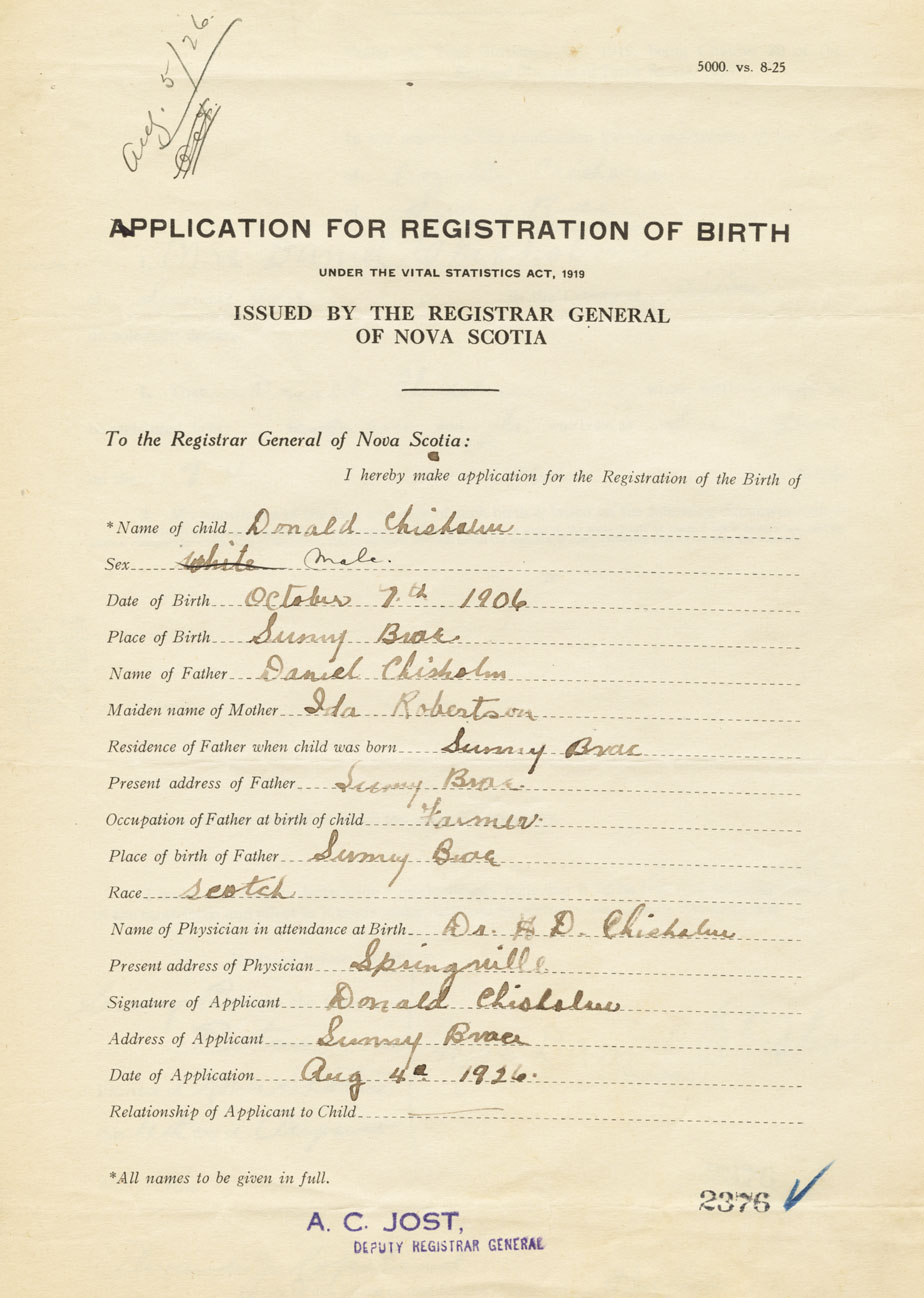 Aug. 5/26.
5000. vs. 8-25
APPLICATION FOR REGISTRATION OF BIRTH
UNDER THE VITAL STATISTICS ACT, 1919
ISSUED BY THE REGISTRAR GENERAL
OF NOVA SCOTIA
To the Registrar General of Nova Scotia:
I hereby make application for the Registration of the Birth of
*Name of child Donald Chisholm
Sex white Male.
Date of Birth October 7th 1906
Place of Birth Sunny Brae
Name of Father Daniel Chisholm
Maiden name of Mother Ida Robertson
Residence of Father when child was born Sunny Brae
Present address of Father Sunny Brae
Occupation of Father at birth of child Farmer
Place of birth of Father Sunny Brae
Race Scotch
Name of Physician in attendance at Birth Dr. H D. Chisholm
Present address of Physician Springville
Signature of Applicant Donald Chisholm
Address of Applicant Sunny Brae
Date of Application Aug 4 1926.
Relationship of Applicant to Child
*All names to be given in full.
2376
A. C. JOST,
DEPUTY REGISTRAR GENERAL